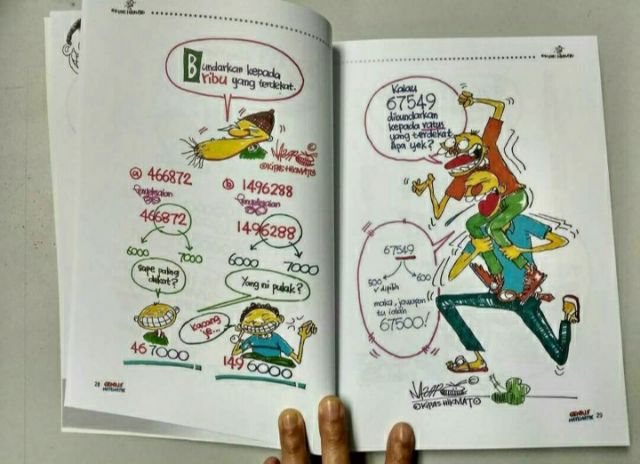 Bundarkan kepada
ribu yang terdekat.
©KIPAS HIKMAT©
a 466872
Pengetesaian
466872
6000 7000
Siape paling
dekat?
467000
b 1496288
Pengetesaian
1496288
6000 7000
Yang ni pulak?
Kacang
je...
1496000
28 GENIUS
MATEMATIK
Kalau
67549
dibundarkan
kepada ratus
yang terdekat
Apa yek?
67549
500 600
✓ dipilih
maka, jawapan
tu ialah
67500!
©KIPAS HIKMAT©
GENIUS
MATEMATIK 29